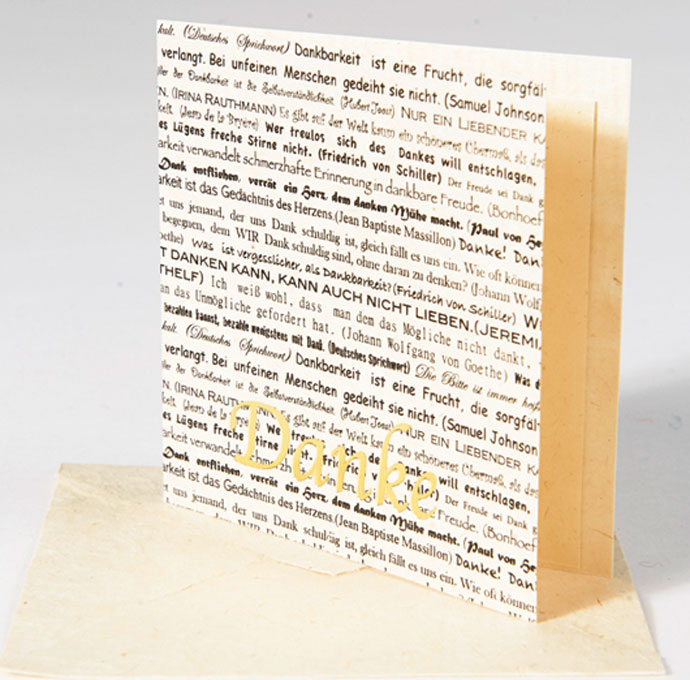 kult. (Deutsches Sprichwort) Dankbarkeit ist eine Frucht, die sorgfäl
verlangt. Bei unfeinen Menschen gedeiht sie nicht. (Samuel Johnson
der Dankbarkeit ist die Selbstverständlichkeit. (Hubert Joost) NUR EIN LIEBENDER KA
N. (IRINA RAUTHMANN) Es gibt auf der Welt kaum ein schöneres Übermaß, als das
keit. (Jean de la Bruyère) Wer treulos sich des Dankes will entschlagen,
es Lügens freche Stirne nicht. (Friedrich von Schiller) Der Freude sei Dank g
arkeit verwandelt schmerzhafte Erinnerung in dankbare Freude. (Bonhoef
Dank entfliehen, verrät ein Herz, dem danken Mühe macht. (Paul von He
arkeit ist das Gedächtnis des Herzens.(Jean Baptiste Massillon) Danke! Dan
et uns jemand, der uns Dank schuldig ist, gleich fällt es uns ein. Wie oft können
begegnen, dem WIR Dank schuldig sind, ohne daran zu denken? (Johann Wolf
oethe) Was ist vergesslicher, als Dankbarkeit? (Friedrich von Schiller) W
T DANKEN KANN, KANN AUCH NICHT LIEBEN.(JEREMI
THELF) Ich weiß wohl, dass man dem das Mögliche nicht dankt,
an das Unmögliche gefordert hat. (Johann Wolfgang von Goethe) Was
bezahlen kannst, bezahle wenigstens mit Dank. (Deutsches Sprichwort) Die Bitte ist immer
kult. (Deutsches Sprichwort) Dankbarkeit ist eine Frucht, die sorgfäl
verlangt. Bei unfeinen Menschen gedeiht sie nicht. (Samuel Johnson
der Dankbarkeit ist die Selbstverständlichkeit. (Hubert Joost) NUR EIN LIEBENDER KA
N. (IRINA RAUTHMANN) Es gibt auf der Welt kaum ein schöneres Übermaß, als das
keit. (Jean de la Bruyère) Wer treulos sich des Dankes will entschlagen,
es Lügens freche Stirne nicht. (Friedrich von Schiller) Der Freude sei Dank g
Danke
arkeit verwandelt Erinnerung in Freude. (Bonhoef
Dank entfliehen, verrät ein Herz, dem danken Mühe macht. (Paul von He
arkeit ist das Gedächtnis des Herzens.(Jean Baptiste Massillon) Danke! Dan
et uns jemand, der uns Dank schuldig ist, gleich fällt es uns ein. Wie oft können